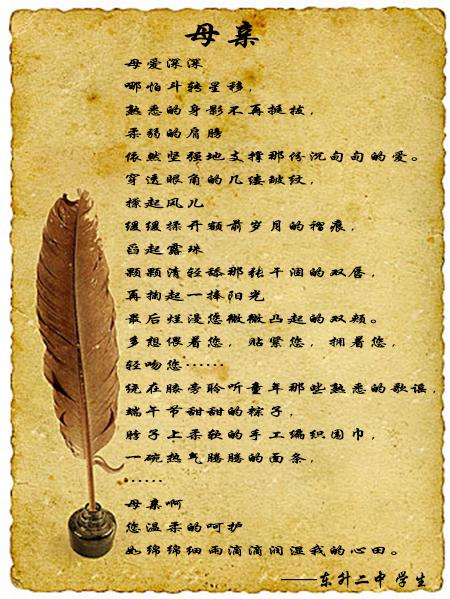 母亲
母爱深深
哪怕斗转星移，
熟悉的身影不再挺拔，
柔弱的肩膀
依然坚强地支撑那份沉甸甸的爱。
穿透眼角的几缕皱纹，
撩起风儿
缓缓揉开额前岁月的褶痕，
舀起露珠
颗颗清轻舔那张干涸的双唇，
再掬起一捧阳光
最后烂漫您微微凸起的双颊。
多想偎着您，贴紧您，拥着您，
轻吻您……
绕在膝旁聆听童年那些熟悉的歌谣，
端午节甜甜的粽子，
脖子上柔软的手工编织围巾，
一碗热气腾腾的面条，
……
母亲啊
您温柔的呵护
如绵绵细雨滴滴润湿我的心田。
——东升二中 学生